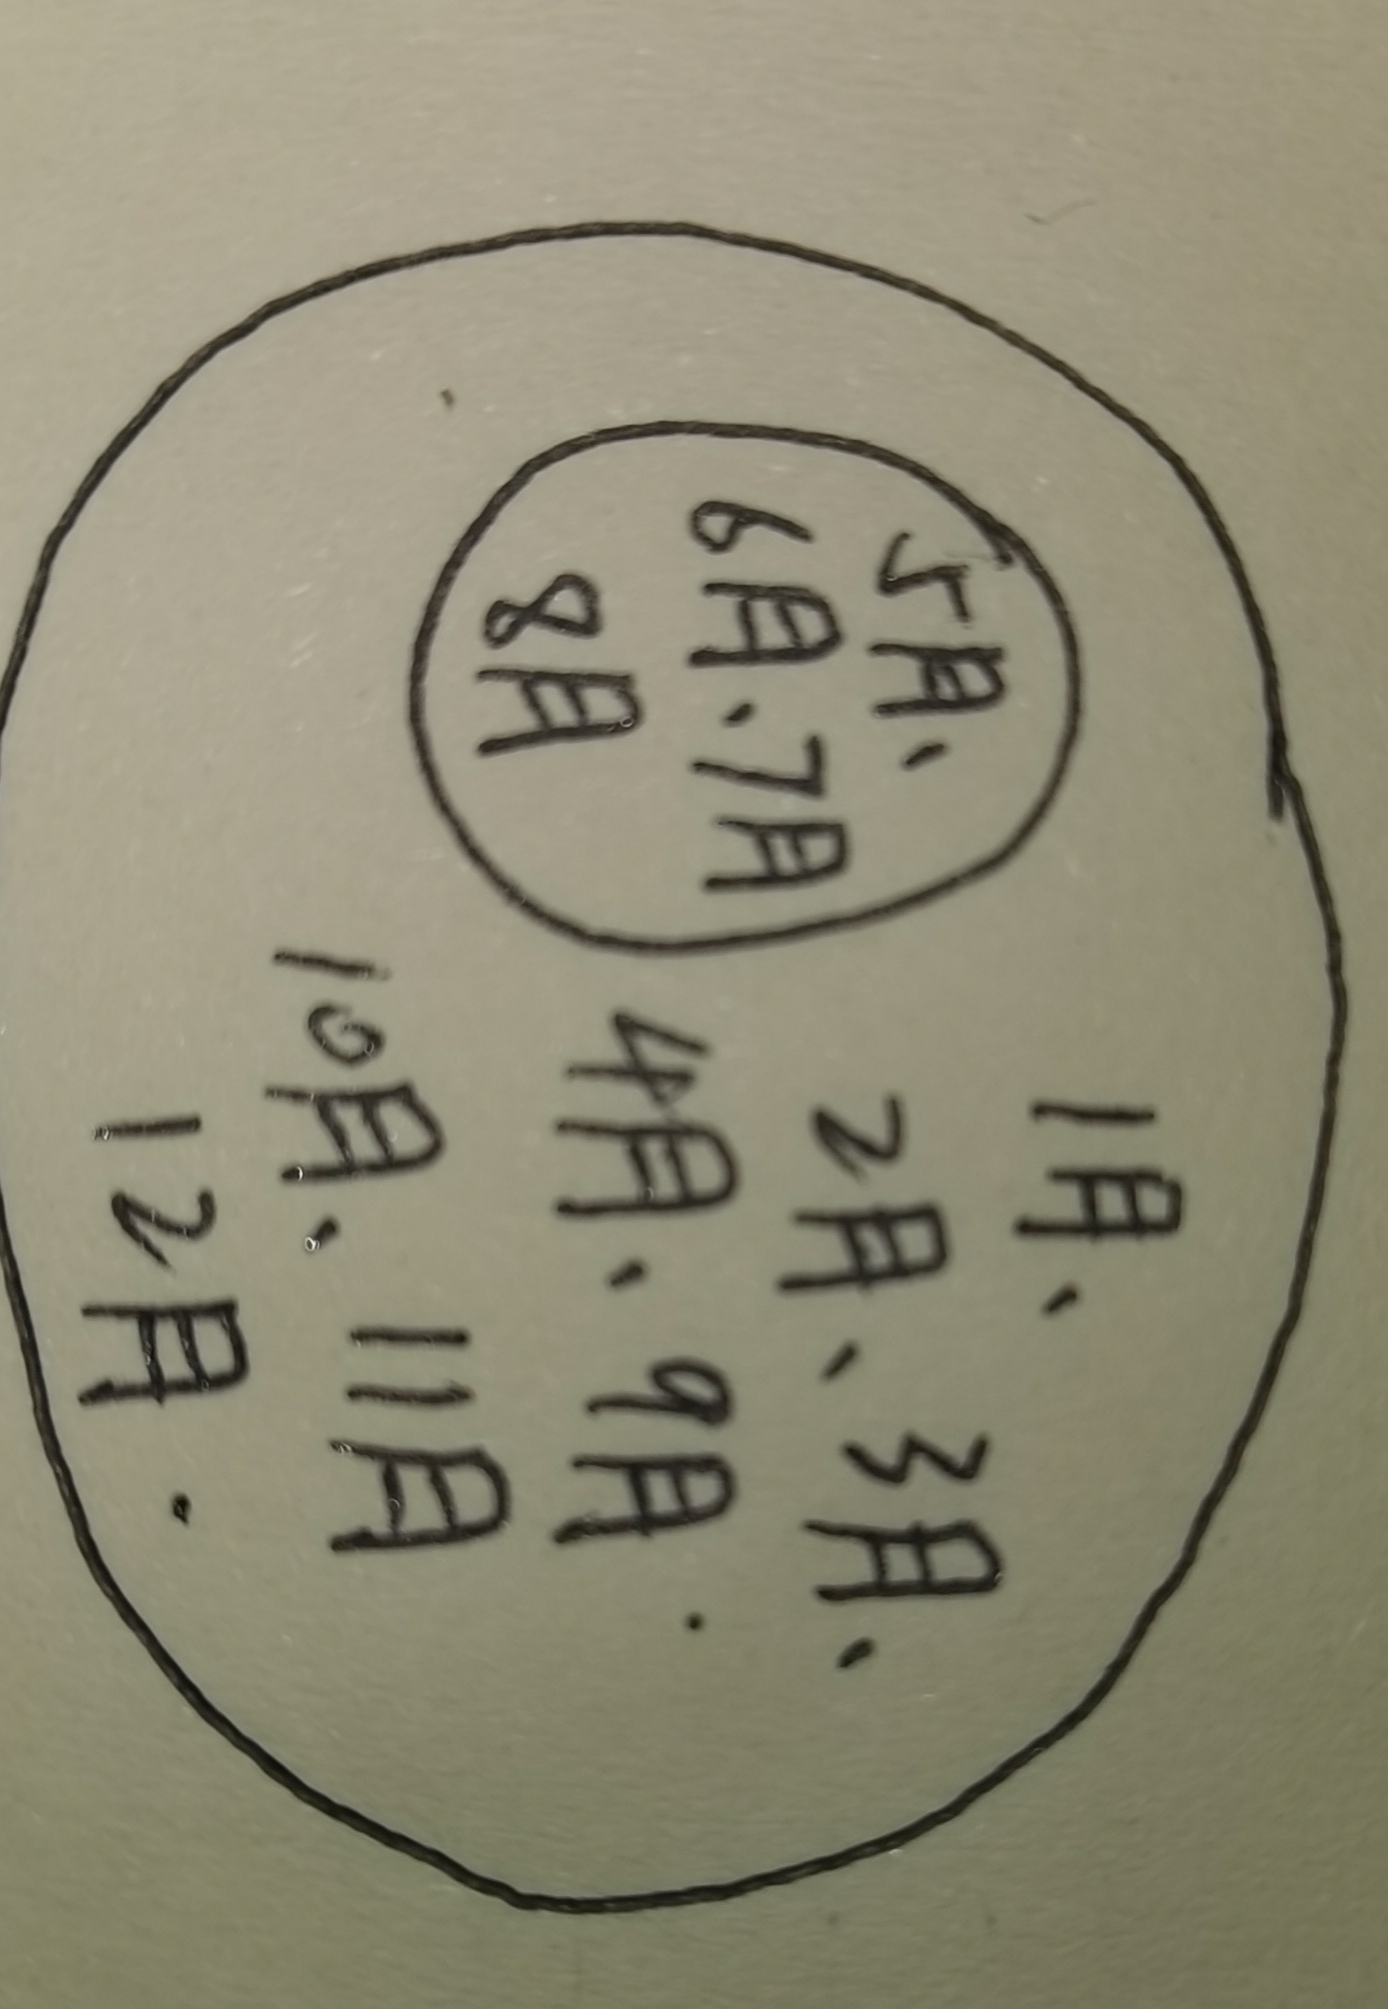 5月、
6月、7月
8月
1月、
2月、3月、
4月、9月·
10月、11月
12月·